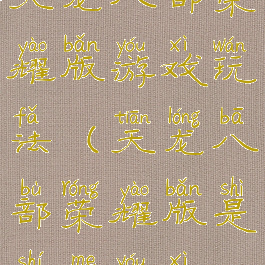 yào bǎn yóu xì wán
耀版游戏玩
fǎ tiān lóng bā
法(天龙八
bù róng yào bǎn shì
部荣耀版是
shí me yóu xì